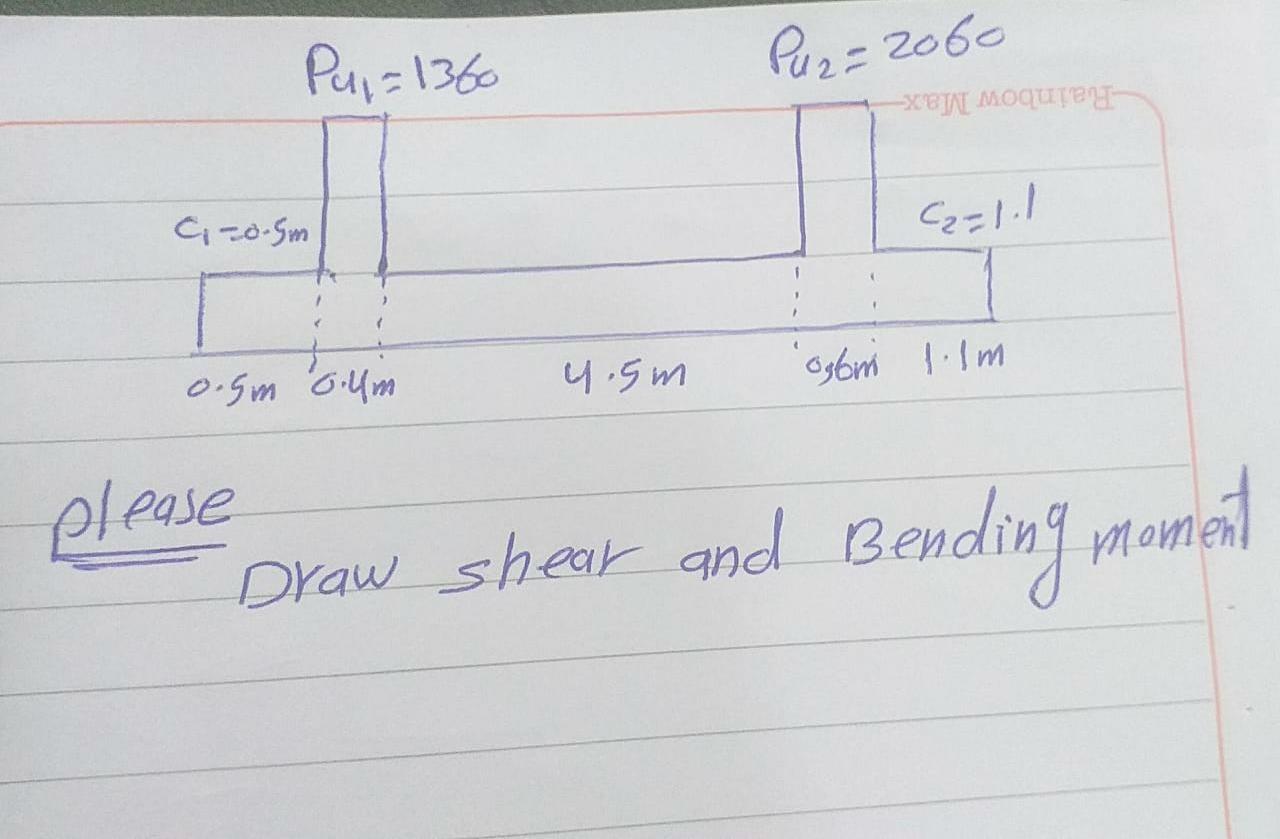 Pu1=1360
Pu2=2060
Rainbow Max
C1=0.5m
C2=1.1
0.5m 0.4m 4.5m 0,6m 1.1m
please
Draw shear and Bending moment